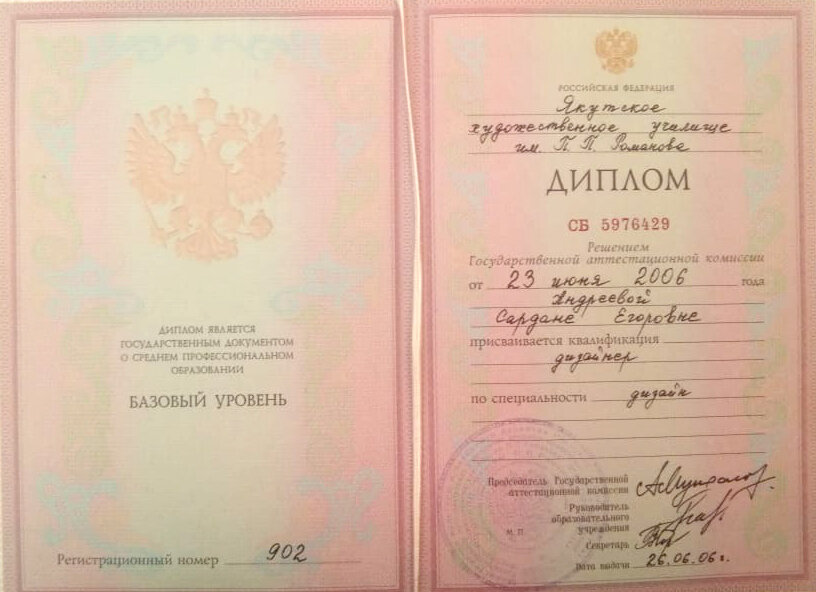 ДИПЛОМ ЯВЛЯЕТСЯ
ГОСУДАРСТВЕННЫМ ДОКУМЕНТОМ
О СРЕДНЕМ ПРОФЕССИОНАЛЬНОМ
ОБРАЗОВАНИИ
БАЗОВЫЙ УРОВЕНЬ
Регистрационный номер 902
РОССИЙСКАЯ ФЕДЕРАЦИЯ
Якутское
художественное училище
им. П. П. Романова
ДИПЛОМ
СБ 5976429
Решением
Государственной аттестационной комиссии
от 23 июня 2006 года
Андреевой
Сардане Егоровне
присваивается квалификация
дизайнер
по специальности дизайн
Председатель Государственной
аттестационной комиссии
Руководитель
образовательного
учреждения
М. П.
Секретарь
Дата выдачи 26.06.06г.